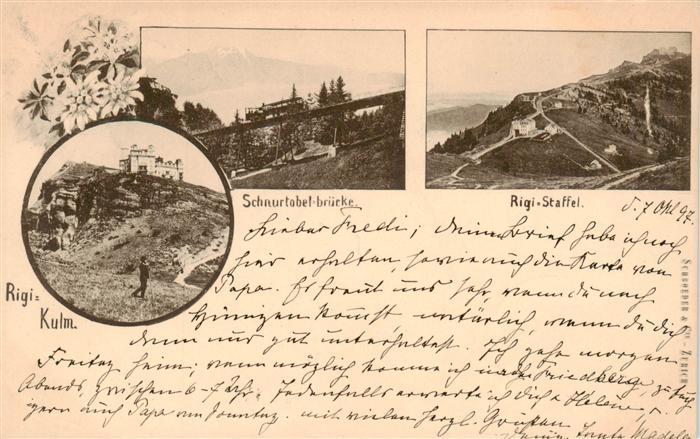 Schnurtobel-brücke.
Rigi-Staffel.
Rigi-
Kulm.
d. 7 Okt 97.
Lieber Fredi; deinen Brief habe ich noch
hier erhalten, sowie auch die Karte von
Papa. Es freut uns sehr, wenn du nach
kommst, natürlich, wenn du dich
denn nur gut unterhaltest. Ich gehe morgen
Freitag heim; wenn möglich komme ich nach Friedberg, zu
Abends, zwischen 6-7 Uhr. Jedenfalls erwarte ich dich & Helene
auch Papa am Sonntag. mit vielen herzl. Grüßen
Deine Tante
SCHROEDER & Cie - ZÜRICH